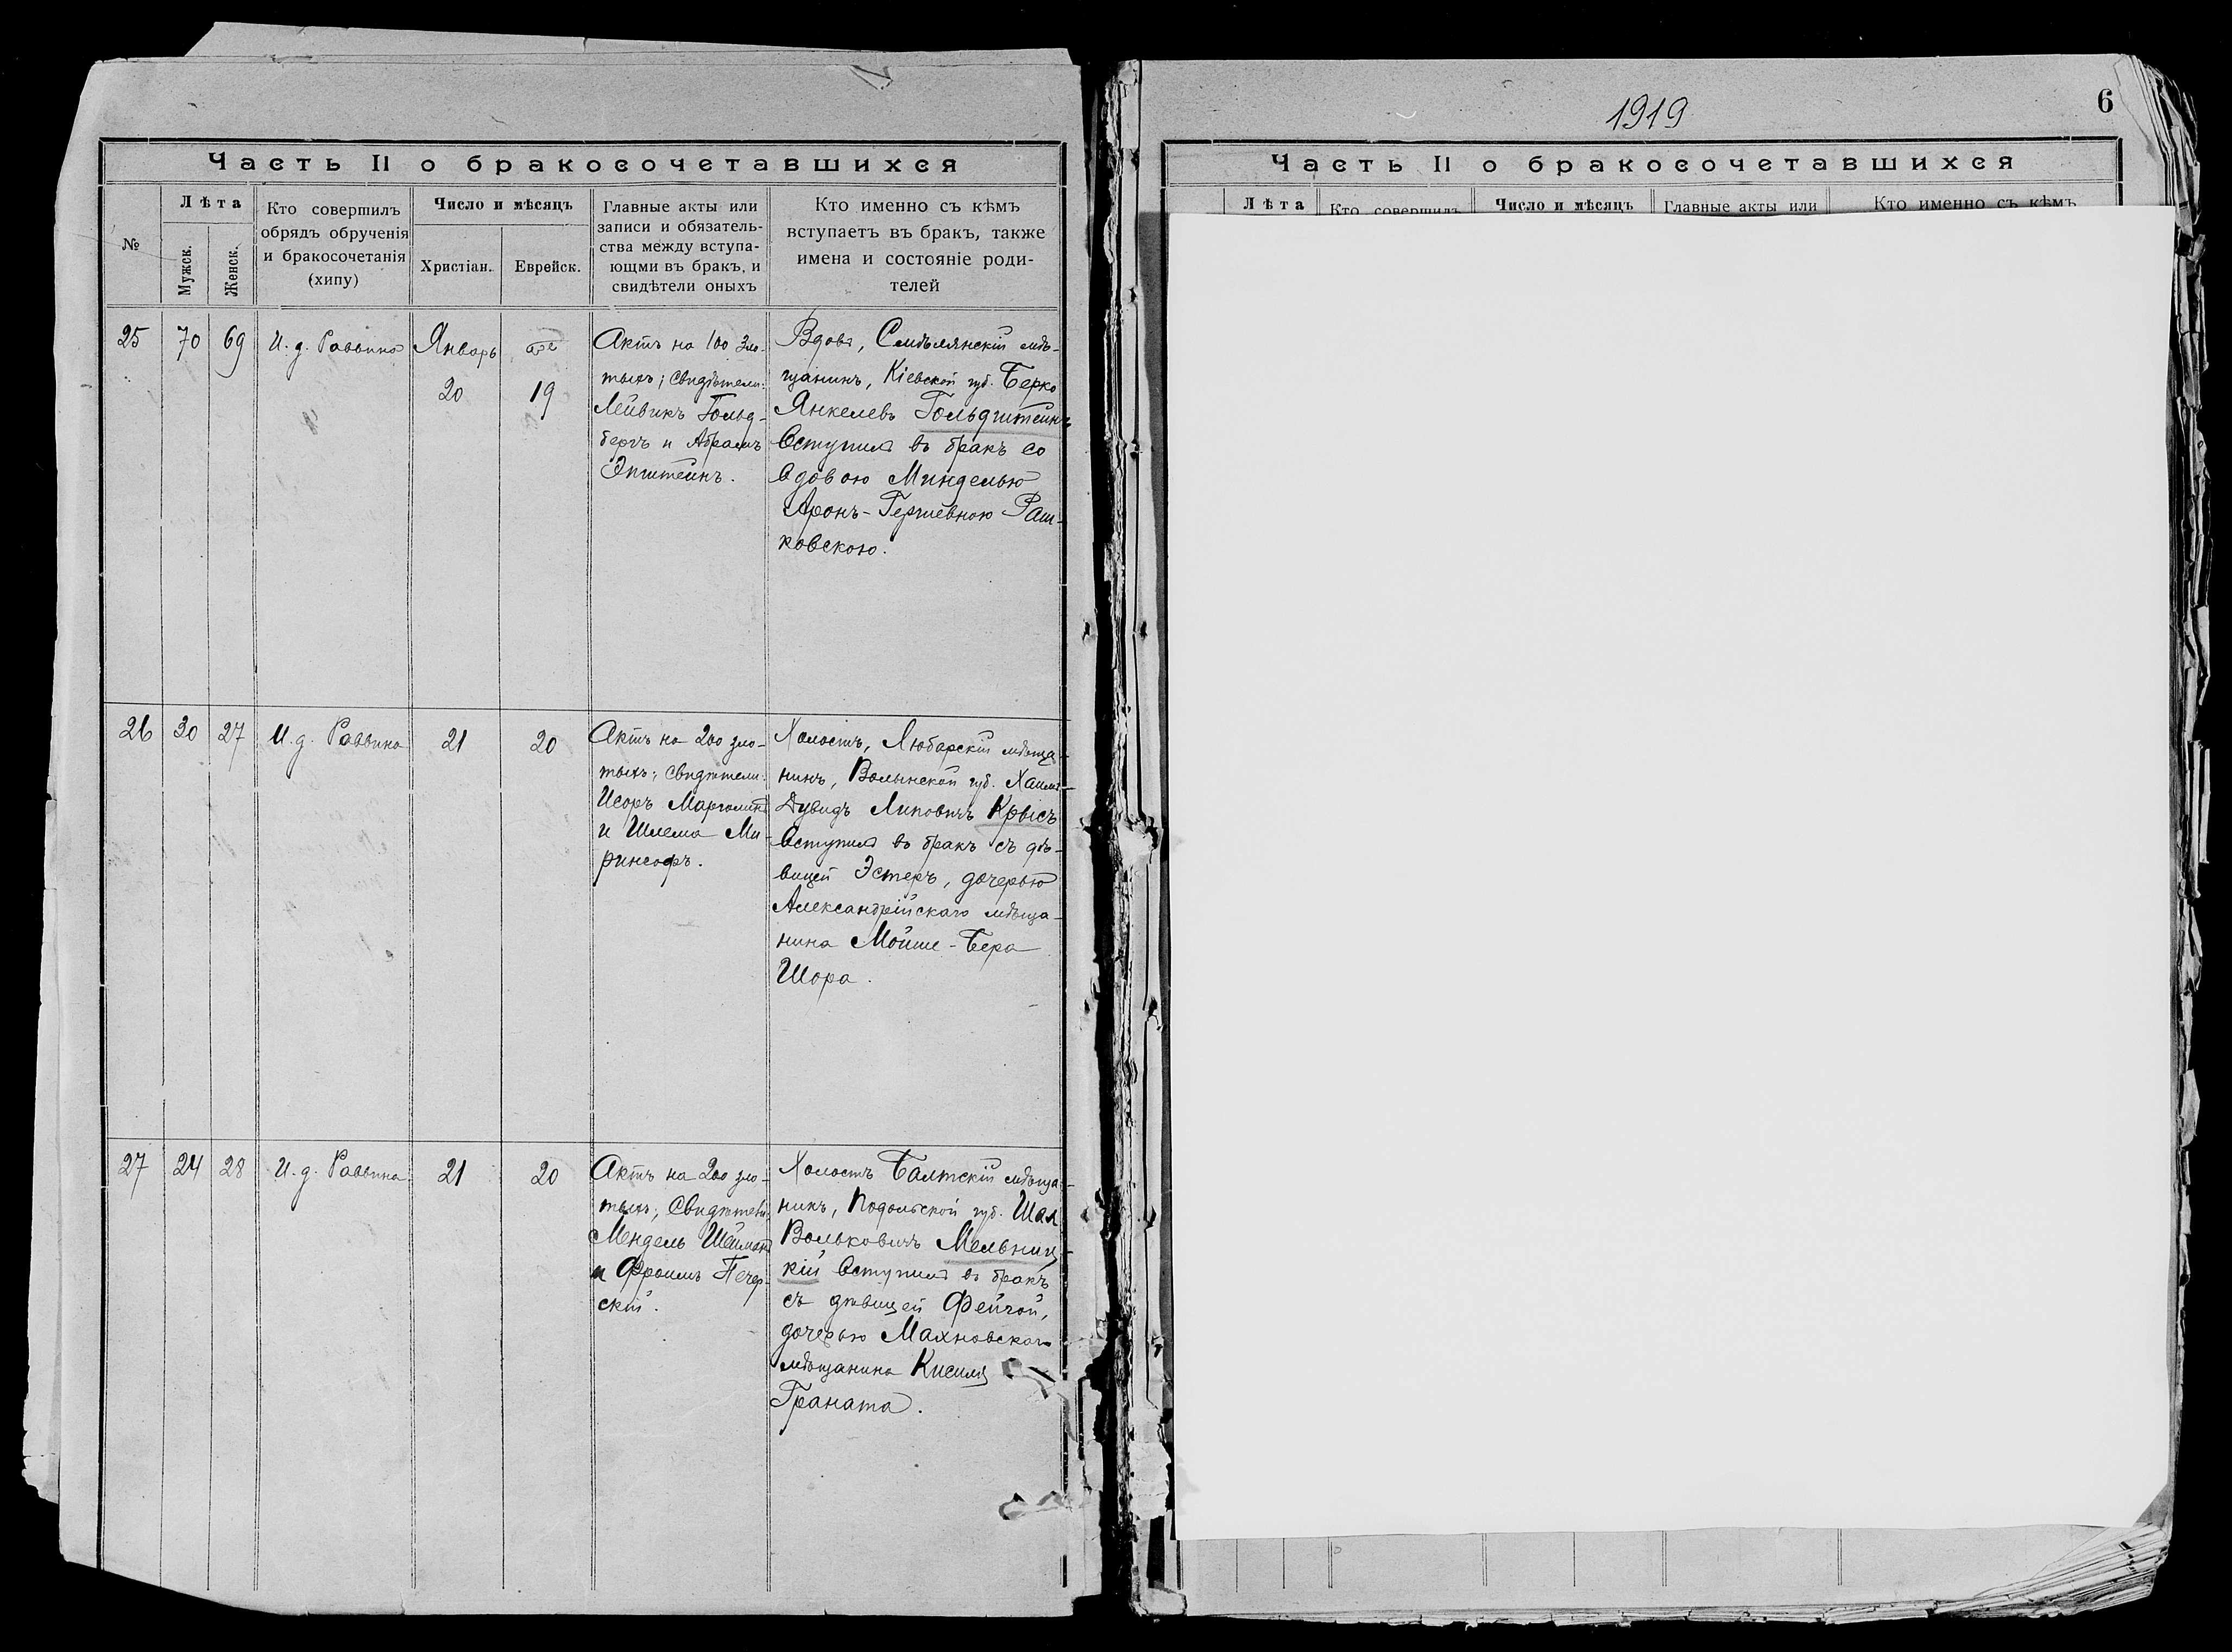 1919
6
Часть II о бракосочетавшихся
№
Лѣта
Мужск.
Женск.
Кто совершилъ
обрядъ обрученія
и бракосочетанія
(хипу)
Число и мѣсяцъ
Христіан.
Еврейск.
Главные акты или
записи и обязатель-
ства между вступа-
ющми въ бракъ, и
свидѣтели оныхъ
Кто именно съ кѣмъ
вступаетъ въ бракъ, также
имена и состояніе роди-
телей
25
70
69
И. д. Раввина
Январь
20
19
Актъ на 100 зло-
тыхъ; Свидѣтели:
Лейвикъ Гольд-
бергъ и Абрамъ
Эпштейнъ.
Вдовъ, Смѣлянскій мѣ-
щанинъ, Кіевской губ. Берко
Янкелевъ Гольдштейнъ
вступилъ въ бракъ со
вдовою Минделью
Аронъ-Гершевною Раш-
ковскою.
26
30
27
И. д. Раввина
21
20
Актъ на 200 зло-
тыхъ; Свидѣтели:
Исоръ Марголинъ
и Шлема Ми-
ринсофъ.
Холостъ, Любарскій мѣща-
нинъ, Волынской губ. Хаимъ-
Дувидъ Липовичъ Крысъ
вступилъ въ бракъ съ дѣ-
вицей Эстеръ, дочерью
Александрійскаго мѣща-
нина Мойше-Бера
Шора.
27
24
28
И. д. Раввина
21
20
Актъ на 200 зло-
тыхъ; Свидѣтели:
Мендель Шейманъ
и Фроимъ Печер-
скій.
Холостъ Балтскій мѣща-
нинъ, Подольской губ. Шая
Вольковичъ Мельниц-
кій вступилъ въ бракъ
съ дѣвицей Фейгой,
дочерью Махновскаго
мѣщанина Кисиля
Граната.
Часть II о бракосочетавшихся
Лѣта
Кто совершилъ
Число и мѣсяцъ
Главные акты или
Кто именно съ кѣмъ